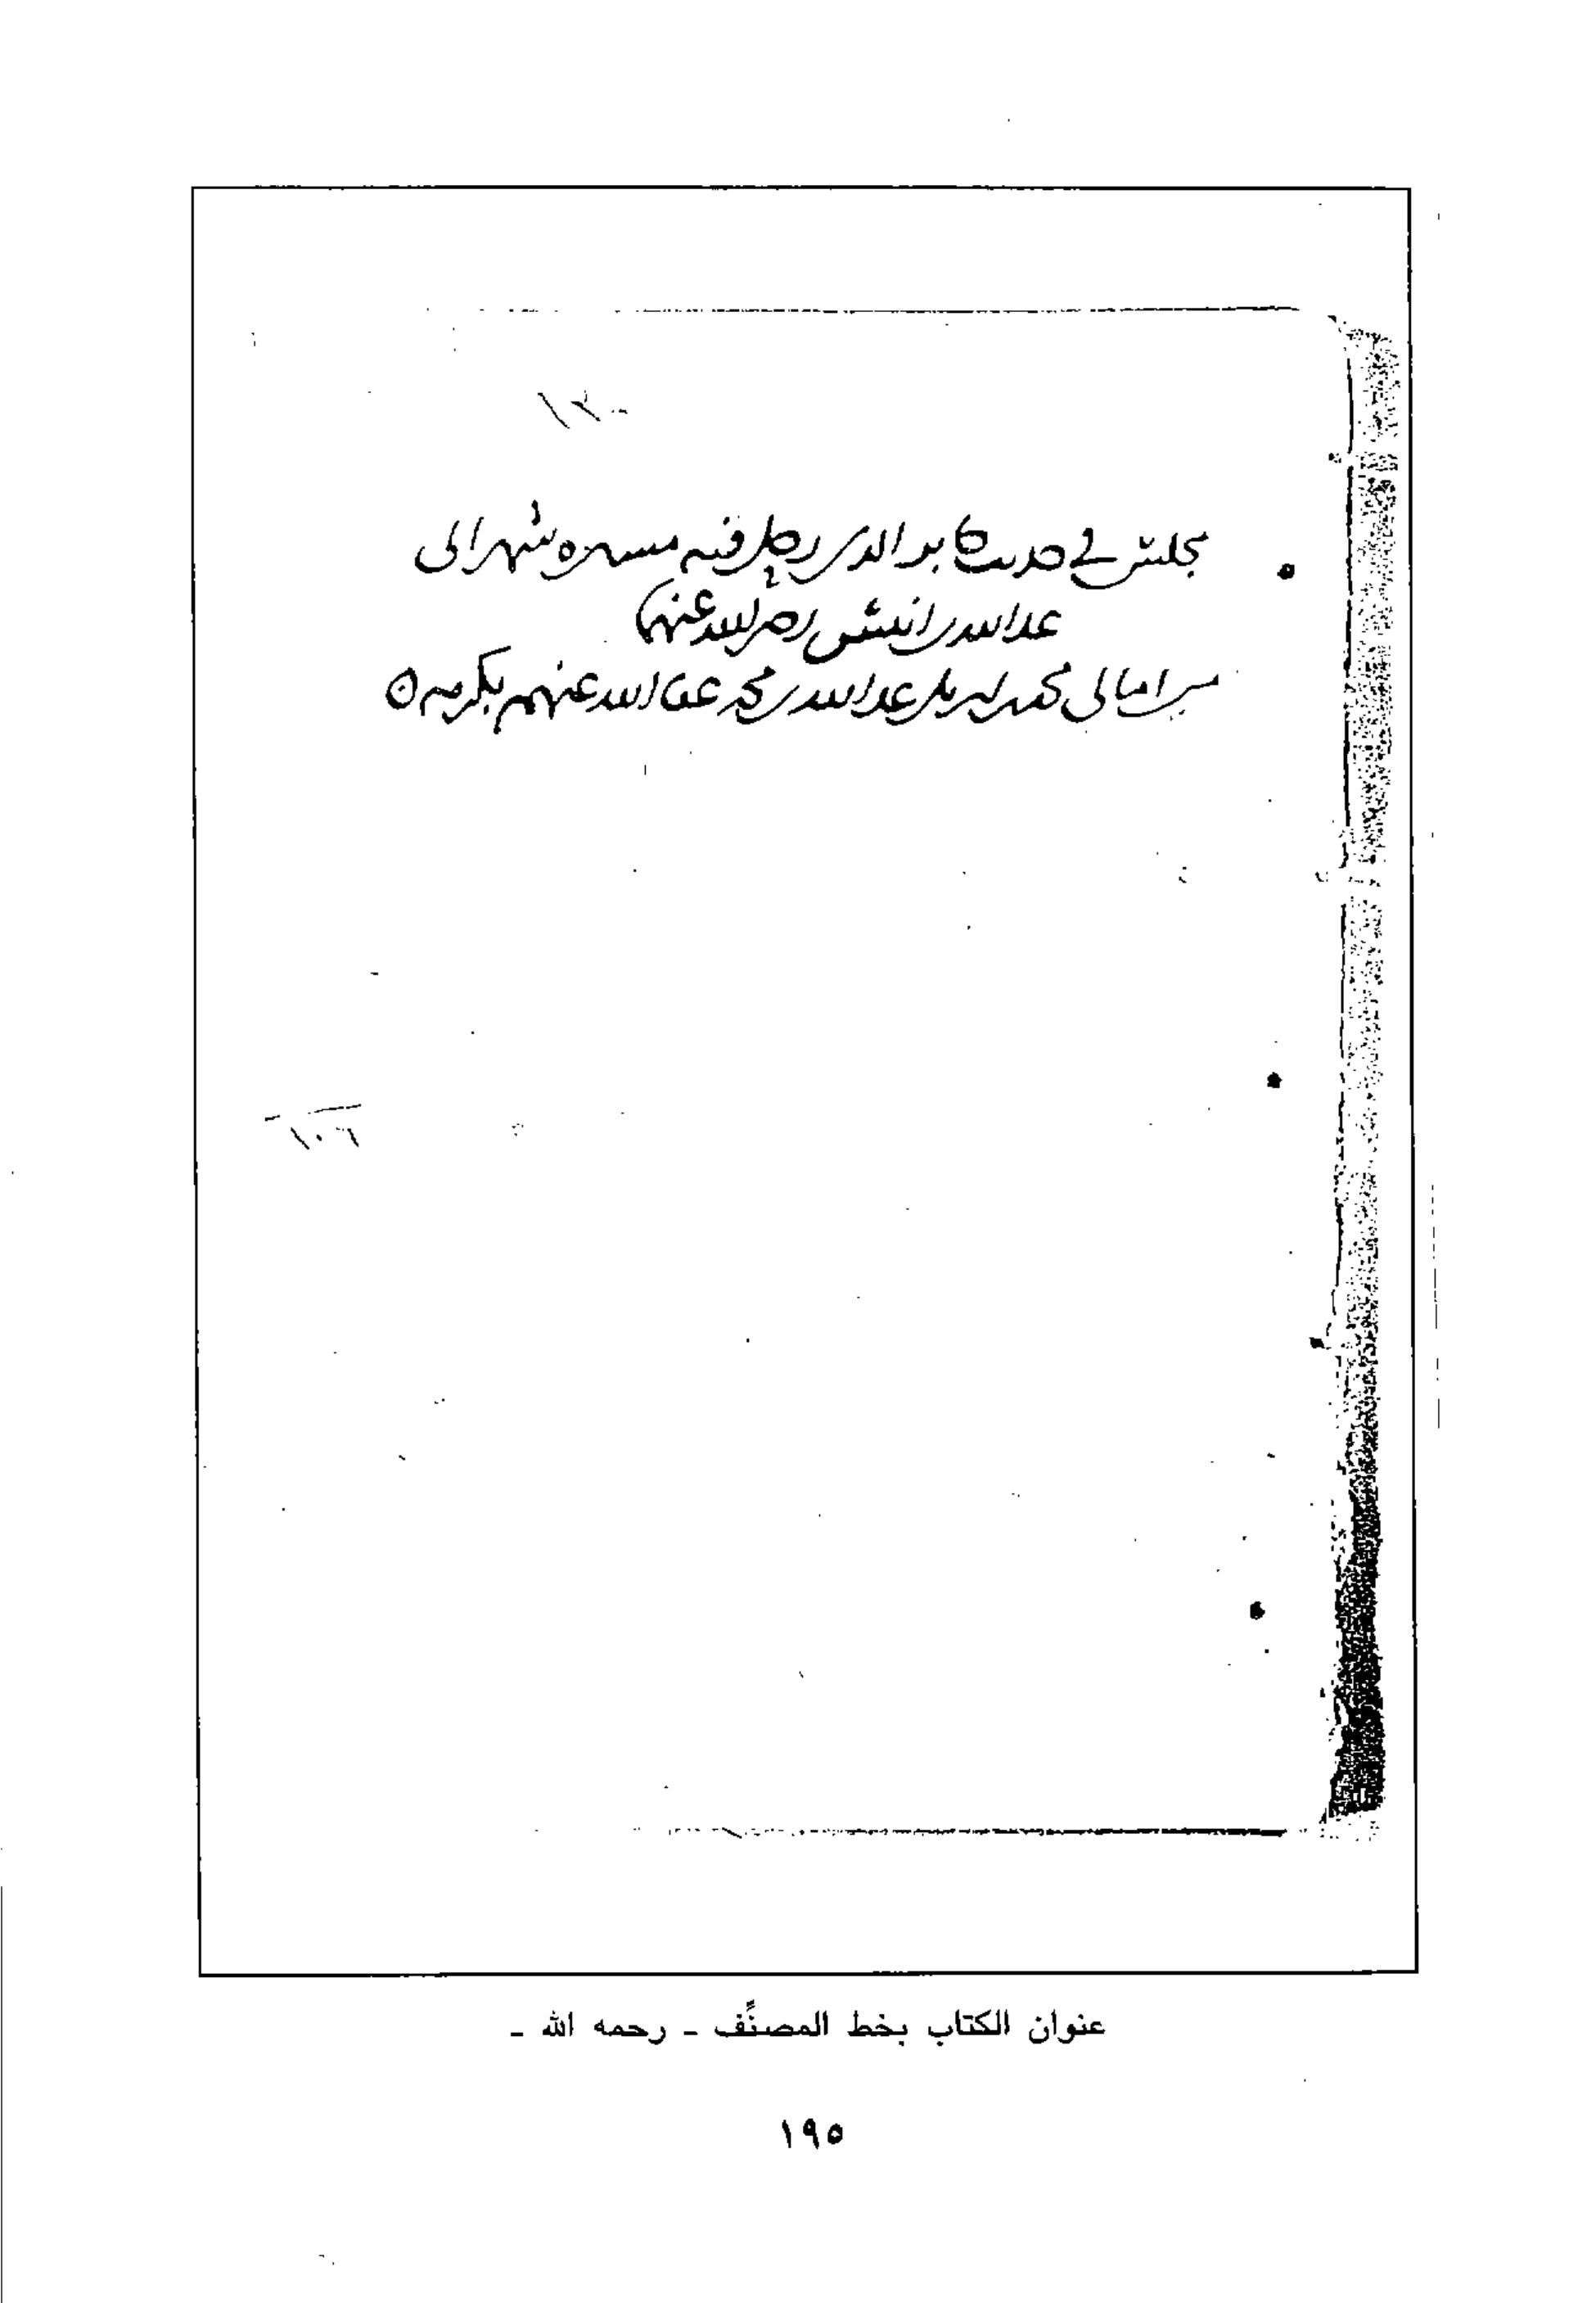 ١٣٠
مجلس في حديث جابر الذي رحل فيه مسيرة شهر إلى
عبد الله بن أنيس رضي الله عنهما
من امالي محمد بن أبي بكر عبد الله بن محمد عفا الله عنهم بكرمه
١٠٦
عنوان الكتاب بخط المصنِّف - رحمه الله -
١٩٥